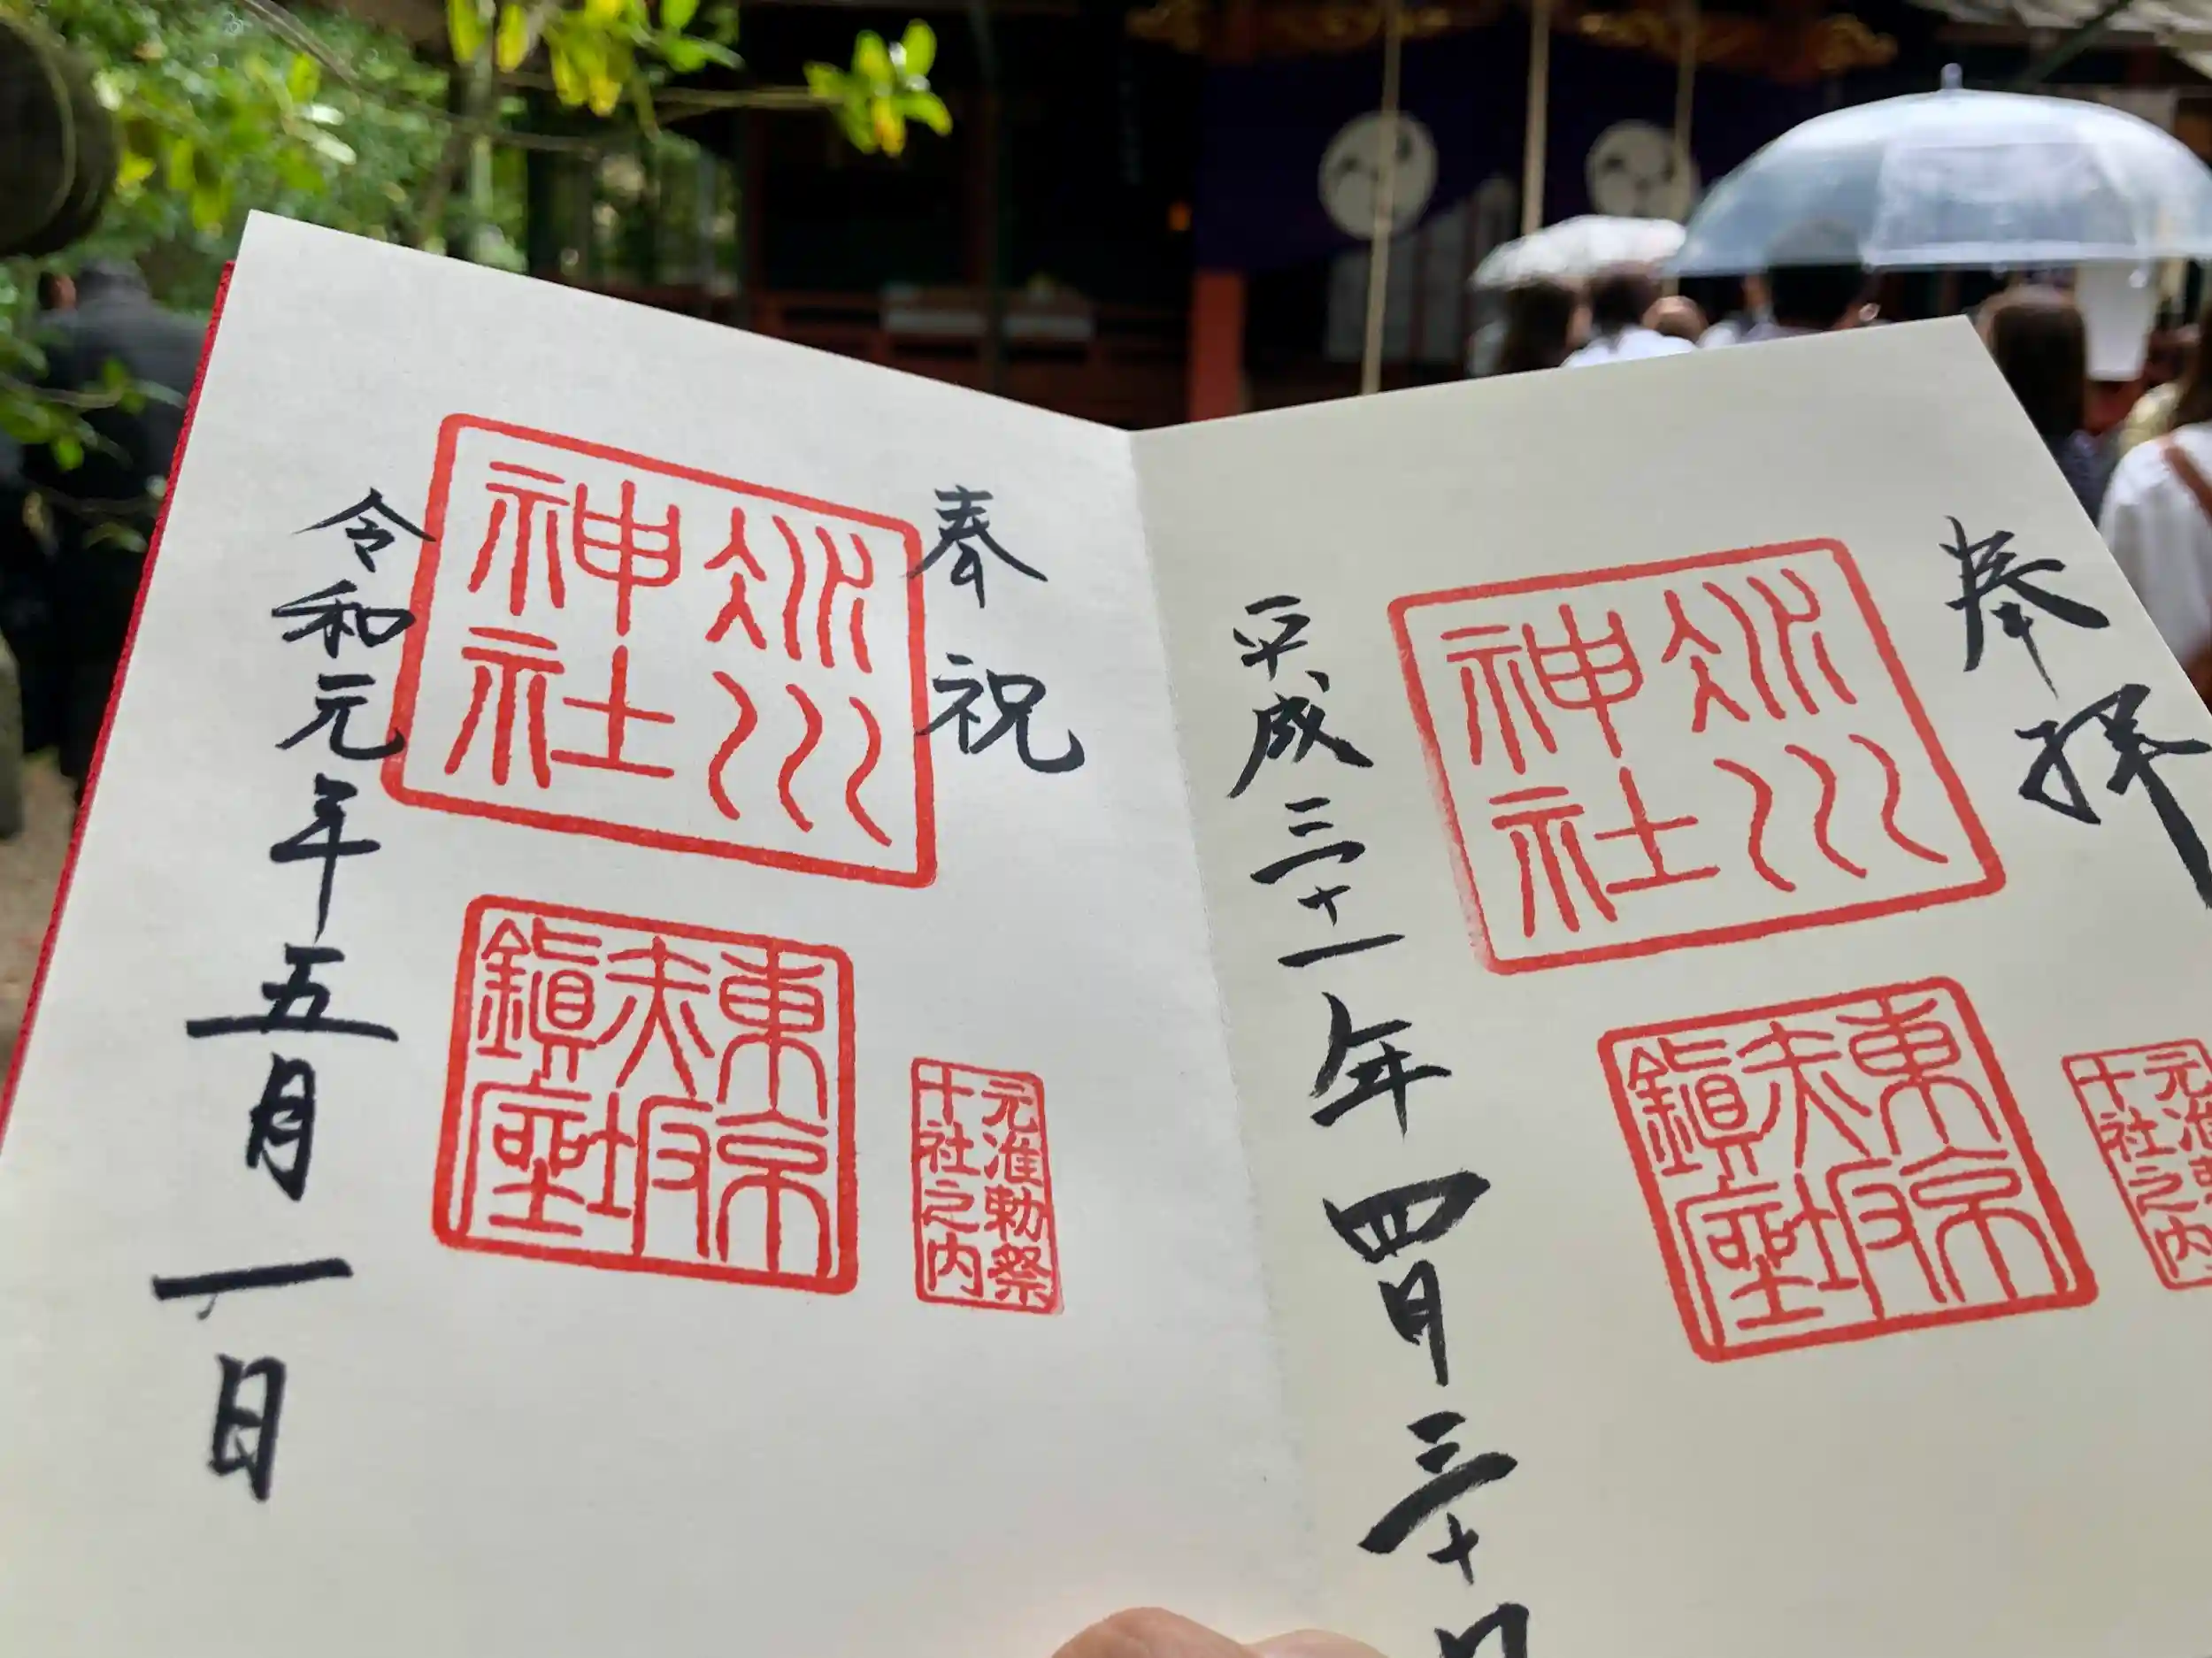 奉拝
氷川
神社
東京
赤坂
鎮座
元准勅祭
十社之内
平成三十一年四月三十日
奉祝
氷川
神社
東京
赤坂
鎮座
元准勅祭
十社之内
令和元年五月一日